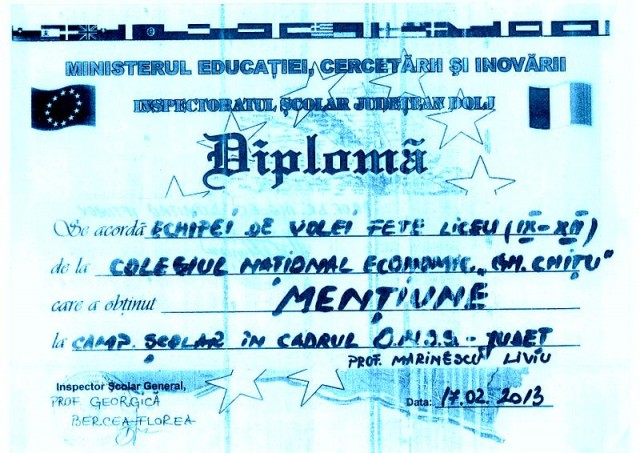 MINISTERUL EDUCAȚIEI, CERCETĂRII ȘI INOVĂRII
INSPECTORATUL ȘCOLAR JUDEȚEAN DOLJ
Diplomă
Se acordă ECHIPEI DE VOLEI FETE LICEU (IX-XII)
de la COLEGIUL NAȚIONAL ECONOMIC "GH. CHIȚU"
care a obținut MENȚIUNE
la CAMP. ȘCOLAR ÎN CADRUL O.N.S.S. - JUDEȚ
PROF. MARINESCU LIVIU
Inspector Școlar General,
PROF GEORGICĂ
BERCEA FLOREA
Data: 17.02.2013